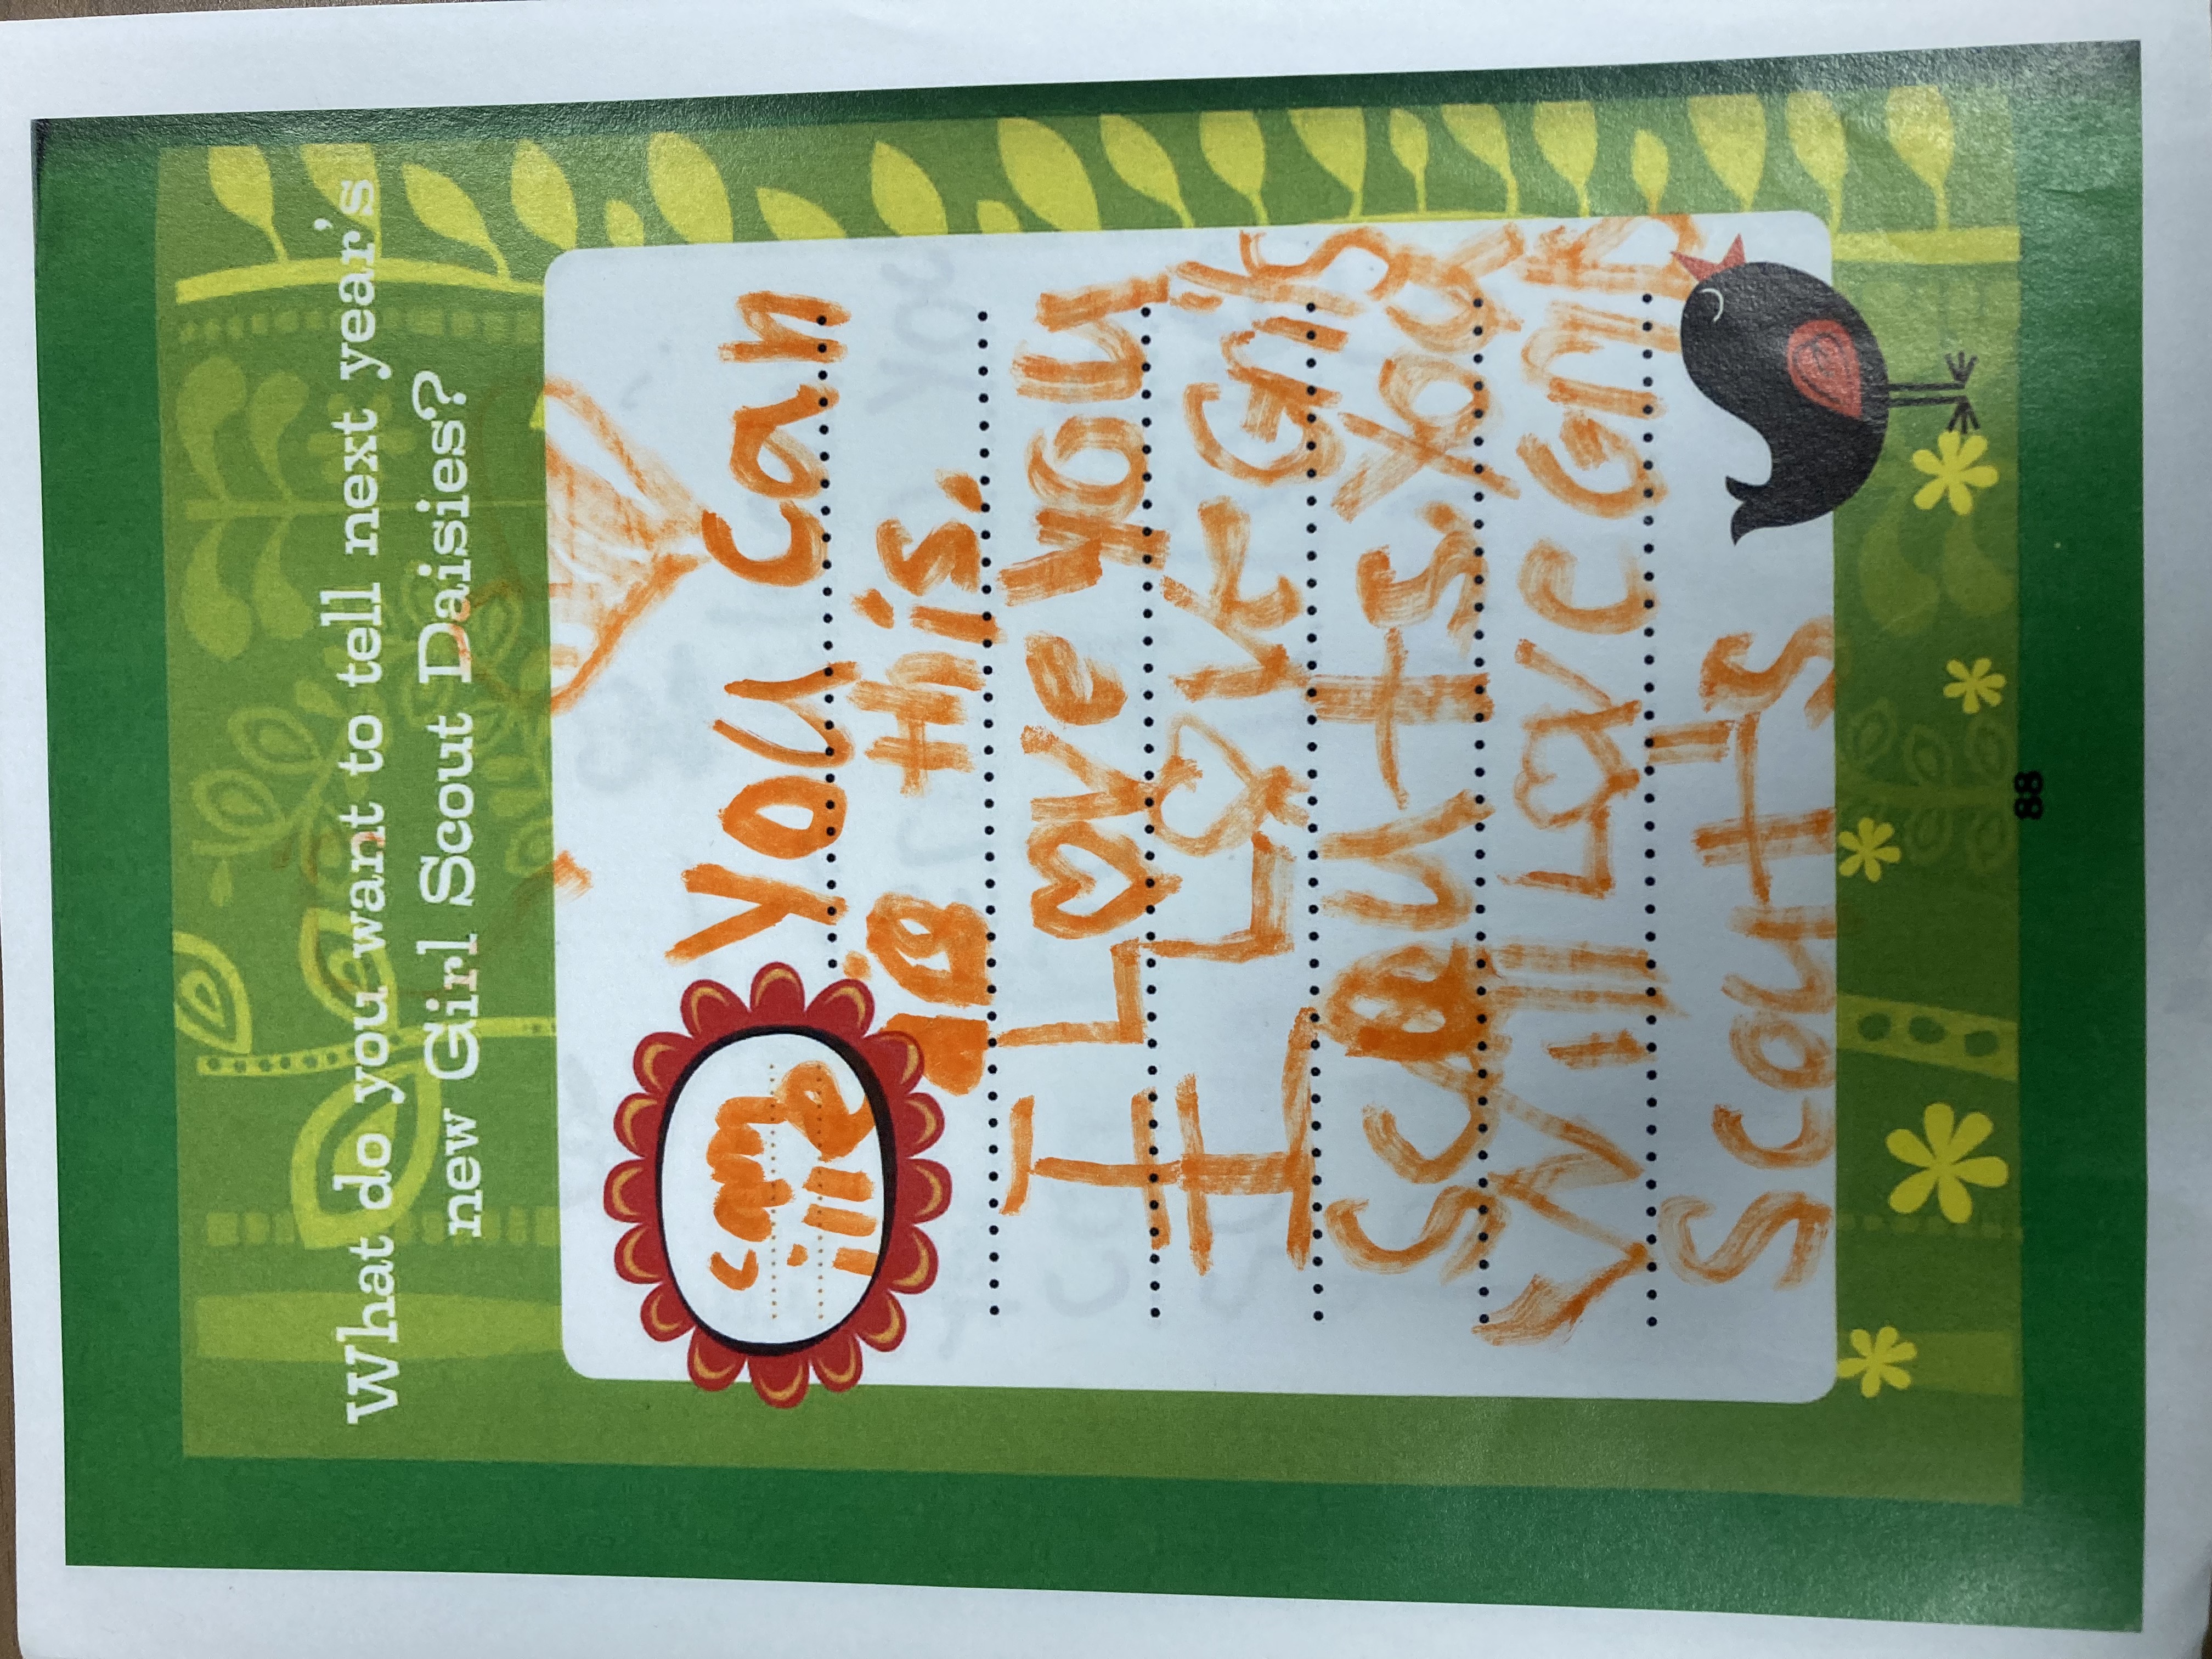 What do you want to tell next year's
new Girl Scout Daisies?
cam
ille
You can
do tHis.
I Love you
I Love Girls
scouts. You
will Love Girl
scouts
88